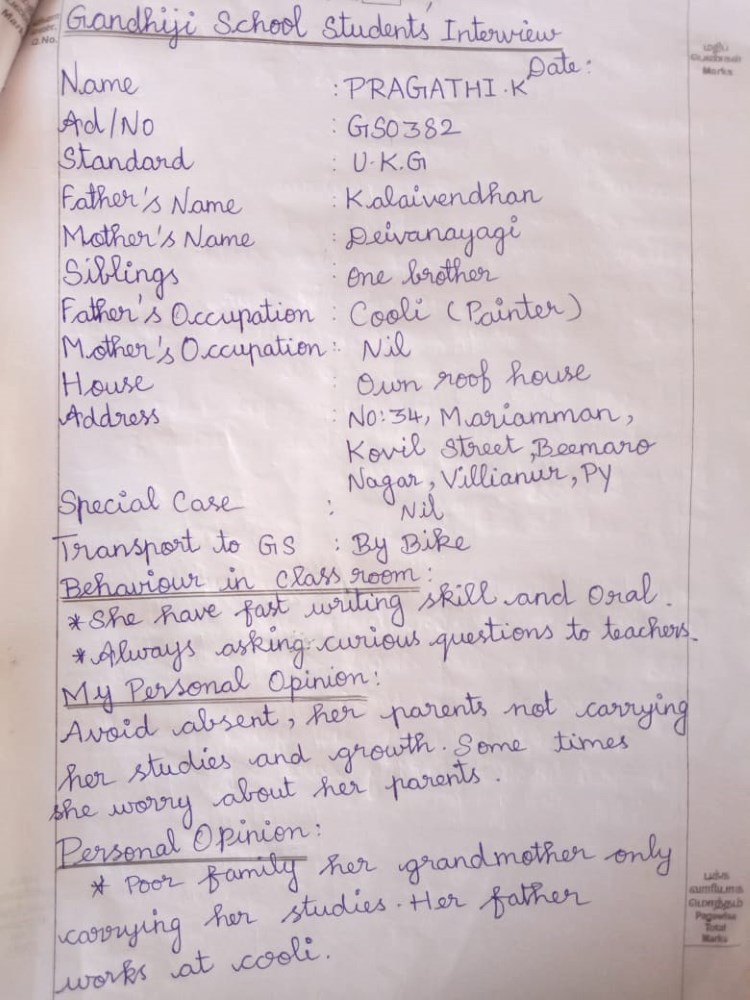 Gandhiji School Students Interview
Date:
Name : PRAGATHI.K
Ad/No : GS0382
Standard : U.K.G
Father's Name : Kalaivendhan
Mother's Name : Deivanayagi
Siblings : One brother
Father's Occupation : Cooli (Painter)
Mother's Occupation : Nil
House : Own roof house
Address : No:34, Mariamman,
Kovil Street, Beemaro
Nagar, Villianur, Py
Special Case : Nil
Transport to GS : By Bike
Behaviour in Class room:
* She have fast writing skill and Oral.
* Always asking curious questions to teachers.
My Personal Opinion:
Avoid absent, her parents not carrying
her studies and growth. Some times
she worry about her parents.
Personal Opinion:
* Poor family her grandmother only
carrying her studies. Her father
works at cooli.
Marks
Q.No.
பக்க
வாரியாக
மொத்தம்
Pagewise
Total
Marks